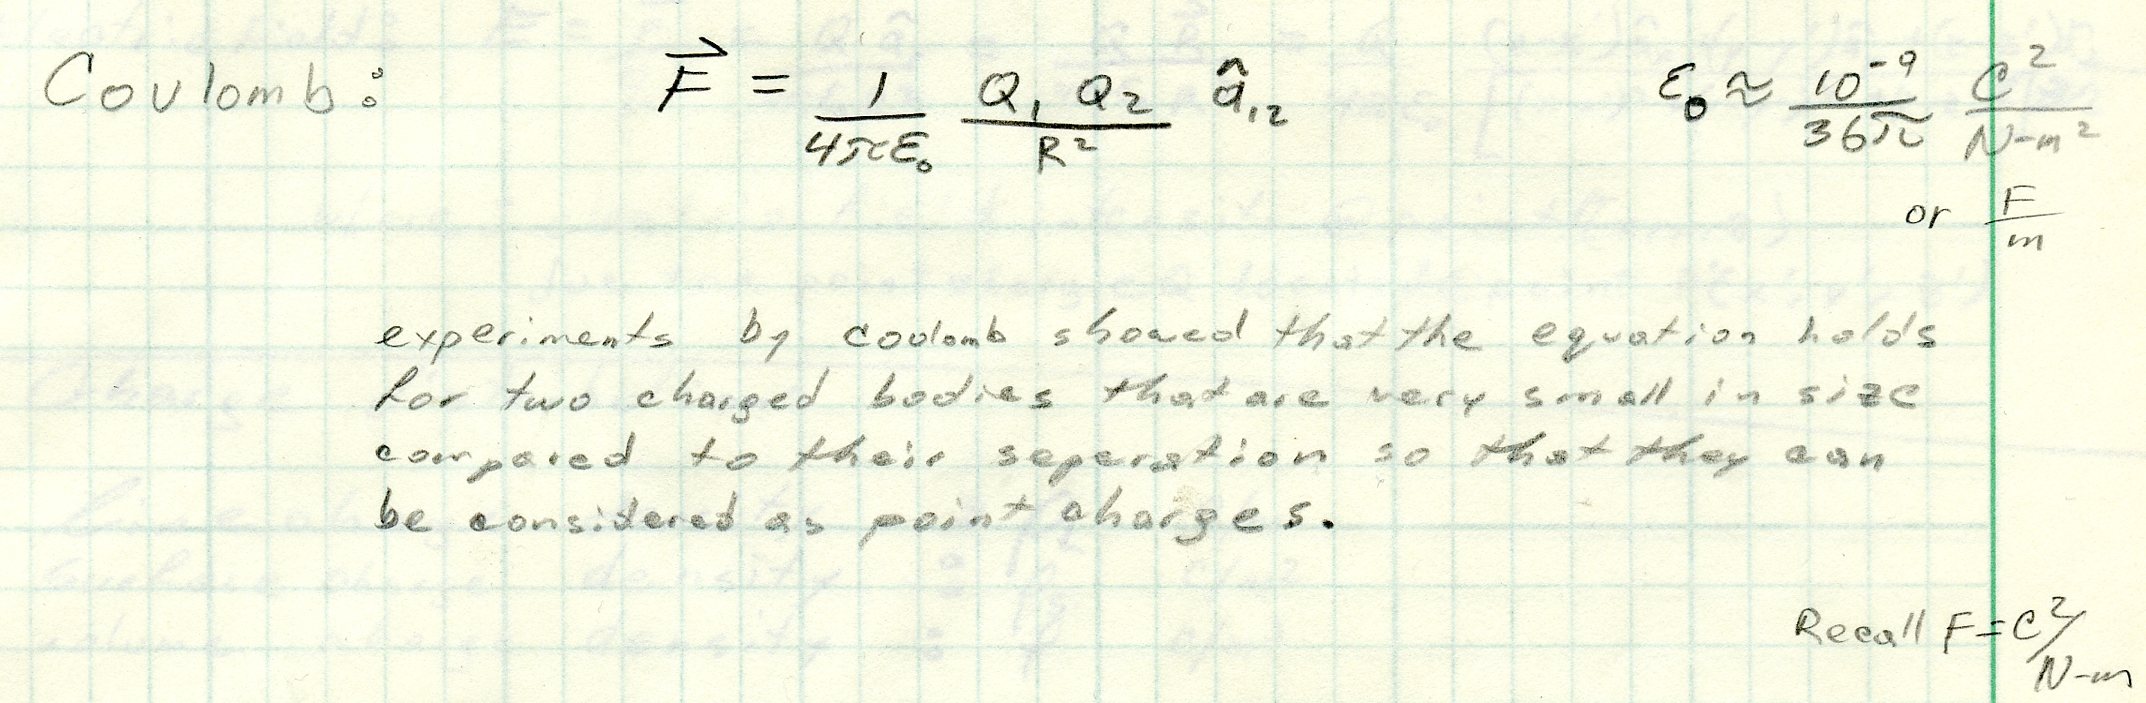 Coulomb: F⃗ = 1/(4πε₀) Q₁ Q₂/R² â₁₂ ε₀ ≈ 10⁻⁹/(36π) C²/(N-m²)
or F/m
experiments by coulomb showed that the equation holds
for two charged bodies that are very small in size
compared to their seperation so that they can
be considered as point charges.
Recall F = C²/N-m